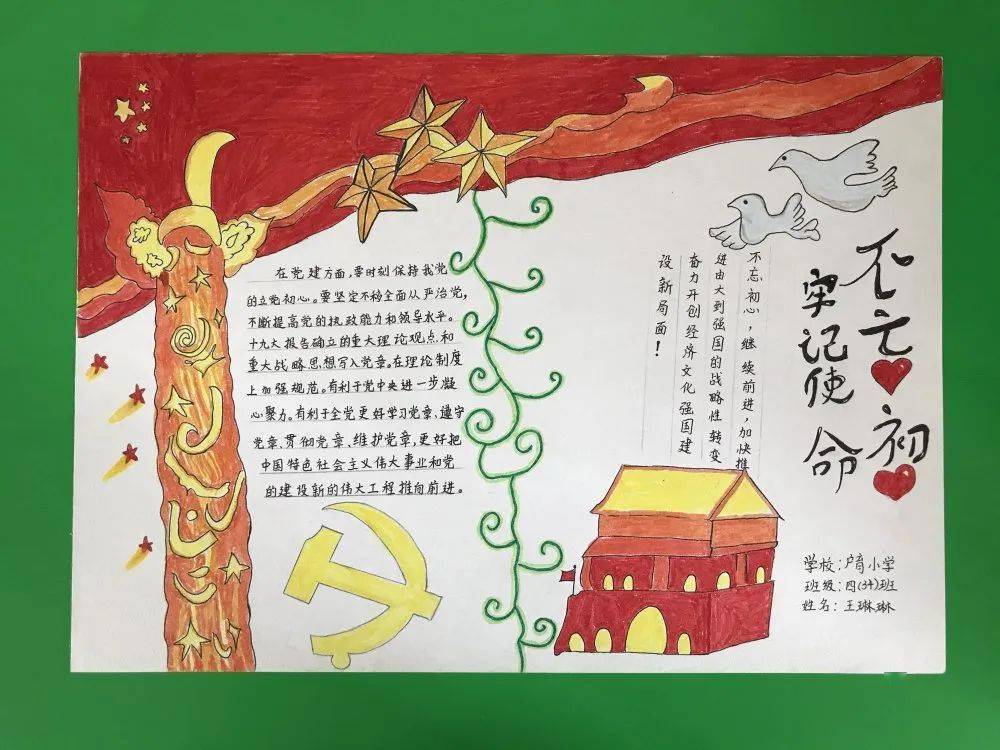 不亡初
牢记使命
在党建方面，要时刻保持我党
的立党初心。要坚定不移全面从严治党，
不断提高党的执政能力和领导水平。
十九大报告确立的重大理论观点和
重大战略思想写入党章。在理论制度
上加强规范。有利于党中央进一步凝
心聚力。有利于全党更好学习党章、遵守
党章、贯彻党章、维护党章，更好把
中国特色社会主义伟大事业和党
的建设新的伟大工程推向前进。
不忘初心，继续前进，加快推
进由大到强国的战略性转变
奋力开创经济文化强国建
设新局面！
学校：户育小学
班级：四(34)班
姓名：王琳琳